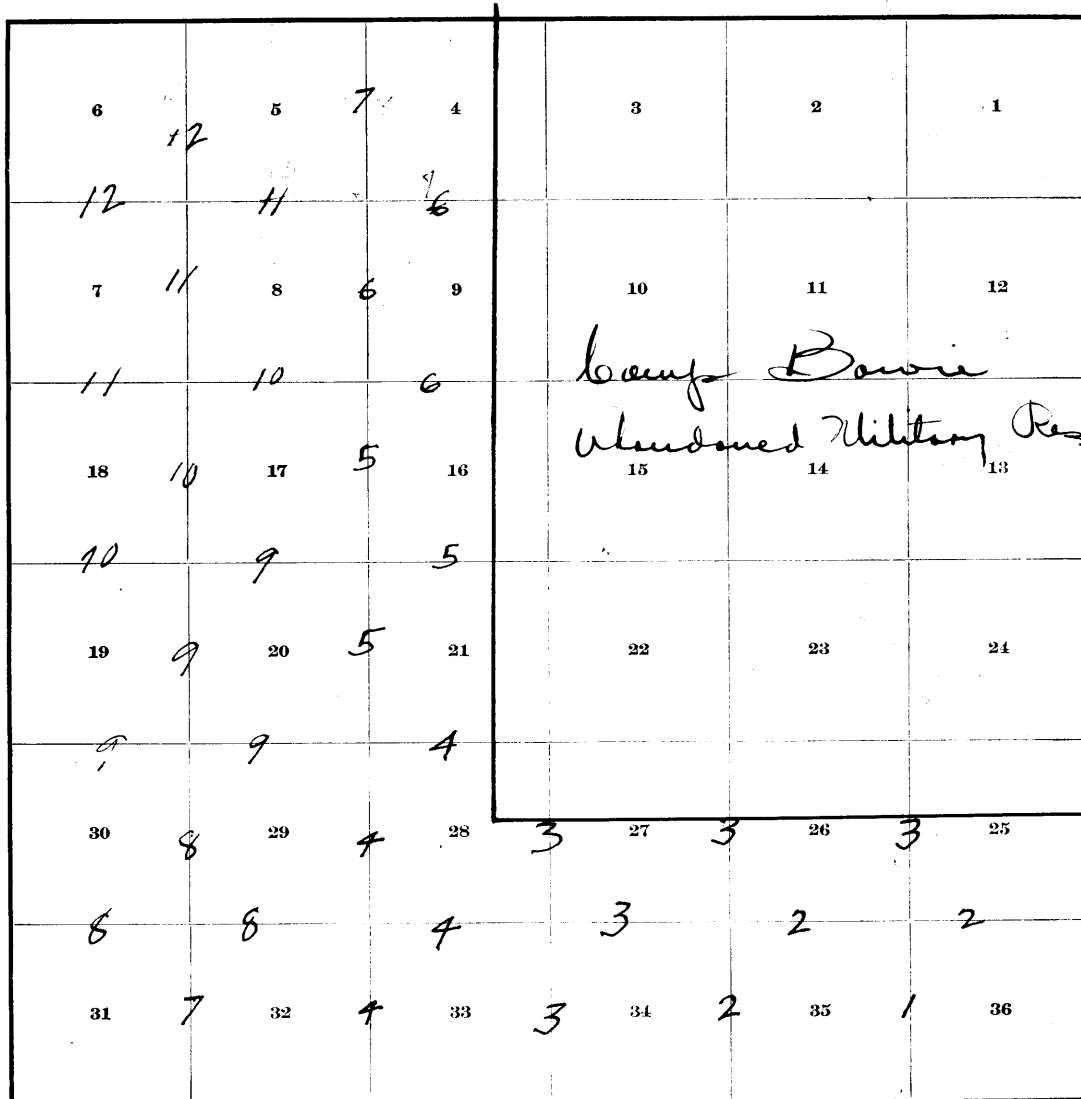 6 5 7 4 3 2 1
12
12 11 6
7 11 8 6 9 10 11 12
11 10 6 Camp Bowie
Abandoned Military Res
18 10 17 5 16 15 14 13
10 9 5
19 9 20 5 21 22 23 24
9 9 4
30 8 29 4 28 3 27 3 26 3 25
8 8 4 3 2 2
31 7 32 4 33 3 34 2 35 1 36